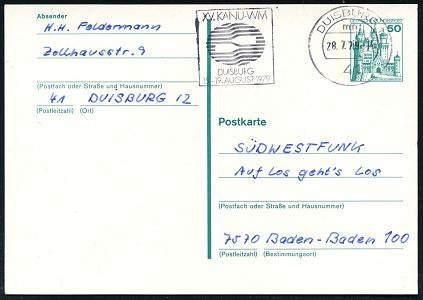 Absender
H.H. Feldermann
Zollhausstr. 9
(Postfach oder Straße und Hausnummer)
41 DUISBURG 12
(Postleitzahl) (Ort)
XV. KANU-WM
DUISBURG
15.-19. AUGUST 1979
DUISBURG
28.7.79
50
Postkarte
SÜDWESTFUNK
Auf Los geht's Los
(Postfach oder Straße und Hausnummer)
7570 Baden-Baden 100
(Postleitzahl) (Bestimmungsort)